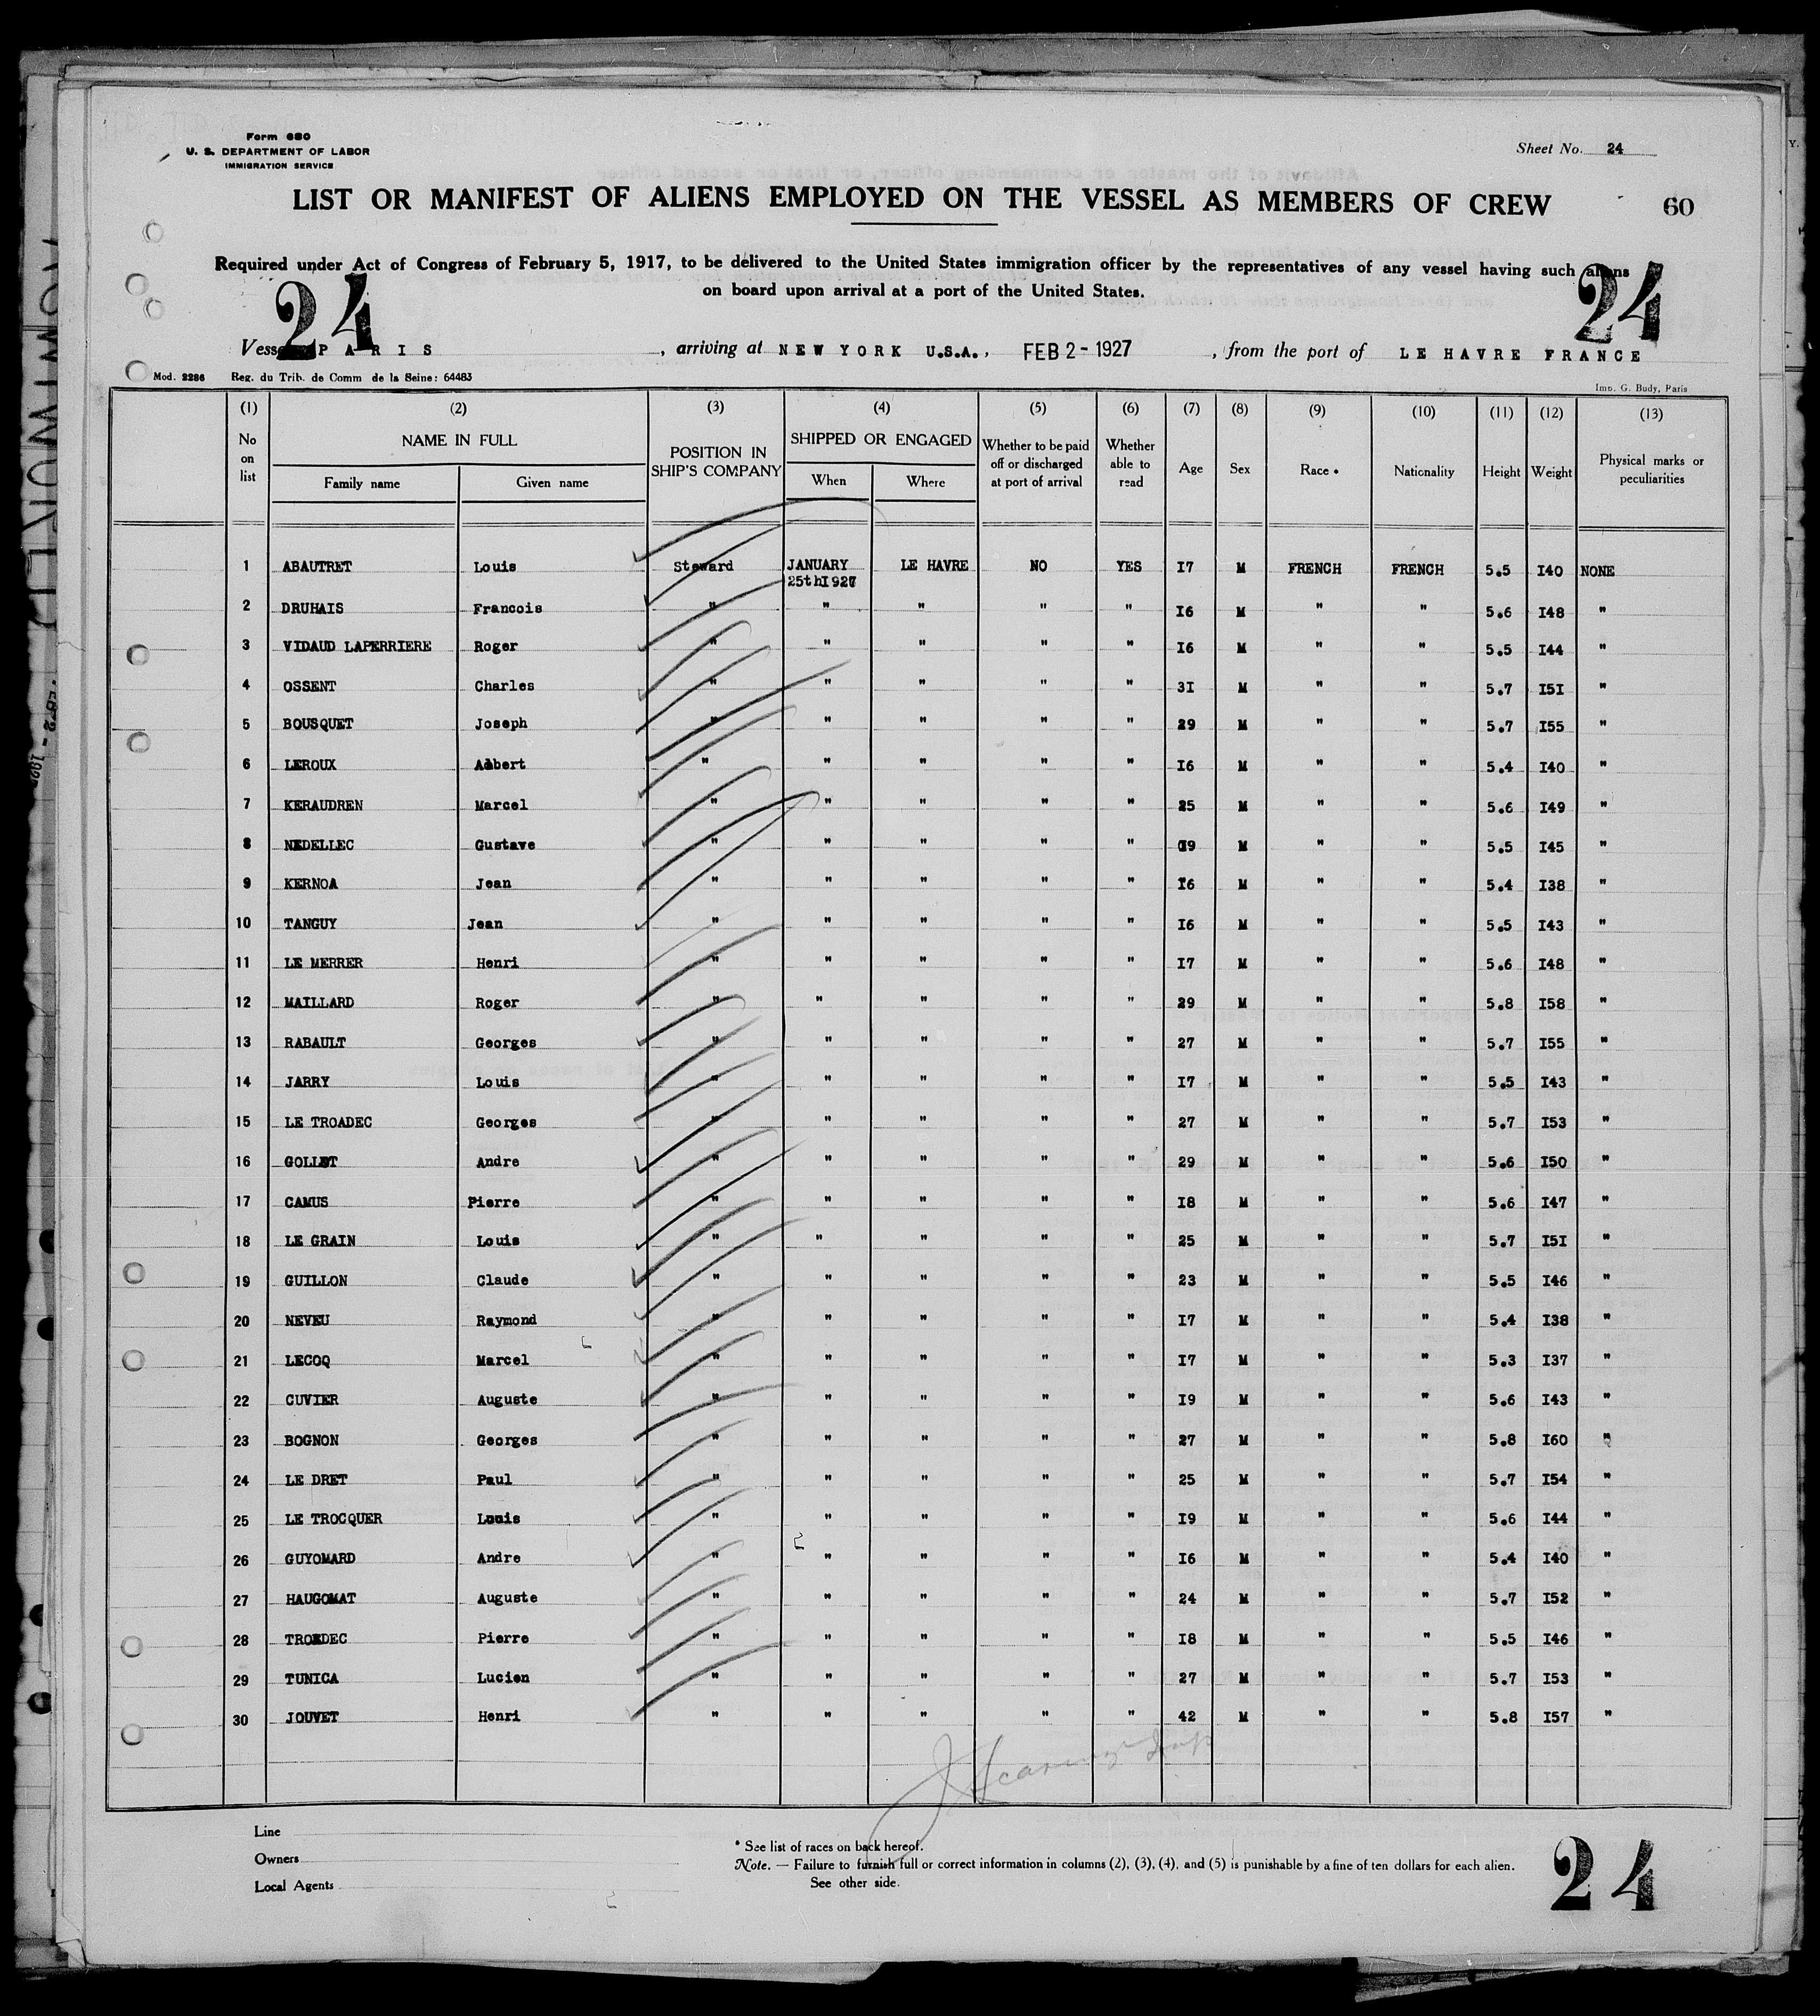 Form 680
U. S. DEPARTMENT OF LABOR
IMMIGRATION SERVICE
Sheet No. 24
LIST OR MANIFEST OF ALIENS EMPLOYED ON THE VESSEL AS MEMBERS OF CREW
60
Required under Act of Congress of February 5, 1917, to be delivered to the United States immigration officer by the representatives of any vessel having such aliens
on board upon arrival at a port of the United States.
24
24
Vessel PARIS, arriving at NEW YORK U.S.A., FEB 2 - 1927, from the port of LE HAVRE FRANCE
Mod. 2286 Reg. du Trib. de Comm de la Seine: 64483
Imp. G. Budy, Paris
(1) (2) (3) (4) (5) (6) (7) (8) (9) (10) (11) (12) (13)
No on list NAME IN FULL POSITION IN SHIP'S COMPANY SHIPPED OR ENGAGED Whether to be paid off or discharged at port of arrival Whether able to read Age Sex Race * Nationality Height Weight Physical marks or peculiarities
Family name Given name When Where
1 ABAUTRET Louis Steward JANUARY 25th1927 LE HAVRE NO YES 17 M FRENCH FRENCH 5.5 140 NONE
2 DRUHAIS Francois " " " " " 16 M " " 5.6 148 "
3 VIDAUD LAPERRIERE Roger " " " " " 16 M " " 5.5 144 "
4 OSSENT Charles " " " " " 31 M " " 5.7 151 "
5 BOUSQUET Joseph " " " " " 29 M " " 5.7 155 "
6 LEROUX Albert " " " " " 16 M " " 5.4 140 "
7 KERAUDREN Marcel " " " " " 25 M " " 5.6 149 "
8 NEDELLEC Gustave " " " " " 19 M " " 5.5 145 "
9 KERNOA Jean " " " " " 16 M " " 5.4 138 "
10 TANGUY Jean " " " " " 16 M " " 5.5 143 "
11 LE MERRER Henri " " " " " 17 M " " 5.6 148 "
12 MAILLARD Roger " " " " " 29 M " " 5.8 158 "
13 RABAULT Georges " " " " " 27 M " " 5.7 155 "
14 JARRY Louis " " " " " 17 M " " 5.5 143 "
15 LE TROADEC Georges " " " " " 27 M " " 5.7 153 "
16 GOLLET Andre " " " " " 29 M " " 5.6 150 "
17 CAMUS Pierre " " " " " 18 M " " 5.6 147 "
18 LE GRAIN Louis " " " " " 25 M " " 5.7 151 "
19 GUILLON Claude " " " " " 23 M " " 5.5 146 "
20 NEVEU Raymond " " " " " 17 M " " 5.4 138 "
21 LECOQ Marcel " " " " " 17 M " " 5.3 137 "
22 CUVIER Auguste " " " " " 19 M " " 5.6 143 "
23 BOGNON Georges " " " " " 27 M " " 5.8 160 "
24 LE DRET Paul " " " " " 25 M " " 5.7 154 "
25 LE TROCQUER Louis " " " " " 19 M " " 5.6 144 "
26 GUYOMARD Andre " " " " " 16 M " " 5.4 140 "
27 HAUGOMAT Auguste " " " " " 24 M " " 5.7 152 "
28 TROADEC Pierre " " " " " 18 M " " 5.5 146 "
29 TUNICA Lucien " " " " " 27 M " " 5.7 153 "
30 JOUVET Henri " " " " " 42 M " " 5.8 157 "
Line
Owners
Local Agents
* See list of races on back hereof.
Note. — Failure to furnish full or correct information in columns (2), (3), (4), and (5) is punishable by a fine of ten dollars for each alien.
See other side.
24